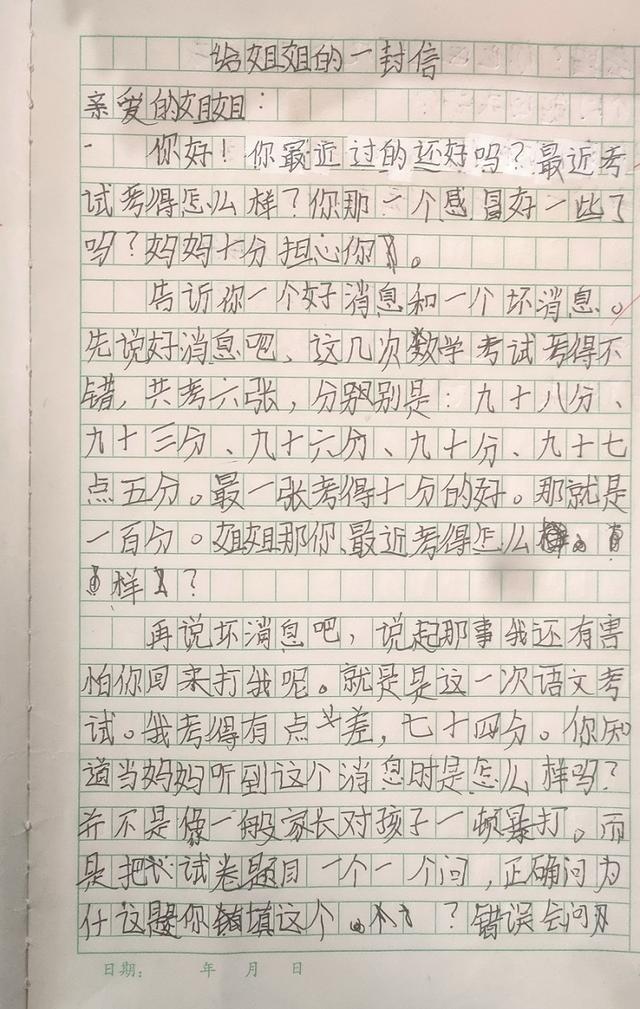 给姐姐的一封信
亲爱的姐姐：
你好！你最近过的还好吗？最近考
试考得怎么样？你那一个感冒好一些了
吗？妈妈十分担心你。
告诉你一个好消息和一个坏消息。
先说好消息吧、这几次数学考试考得不
错，共考六张，分别别是：九十八分、
九十三分、九十六分、九十分、九十七
点五分。最一张考得十分的好。那就是
一百分。姐姐那你、最近考得怎么
样？
再说坏消息吧，说起那事我还有害
怕你回来打我呢。就是是这一次语文考
试。我考得有点差，七十四分。你知
道当妈妈听到这个消息时是怎么样吗？
并不是像一般家长对孩子一顿暴打。而
是把试卷题目一个一个问，正确问为
什这题你填这个？错误会问
日期： 年 月 日